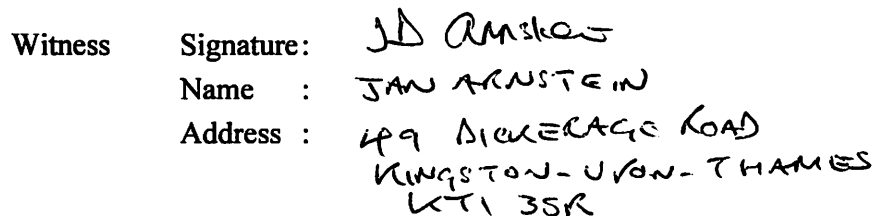 Witness Signature: JD Arnstein
Name : JAN ARNSTEIN
Address : 49 DICKERAGE ROAD
KINGSTON-UPON-THAMES
KT1 3SR